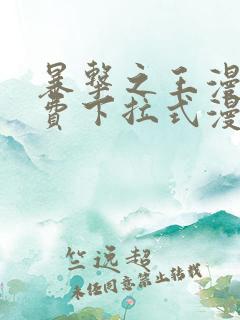 暴擊之王漫
費下拉式漫
竺远超
未经同意禁止转载